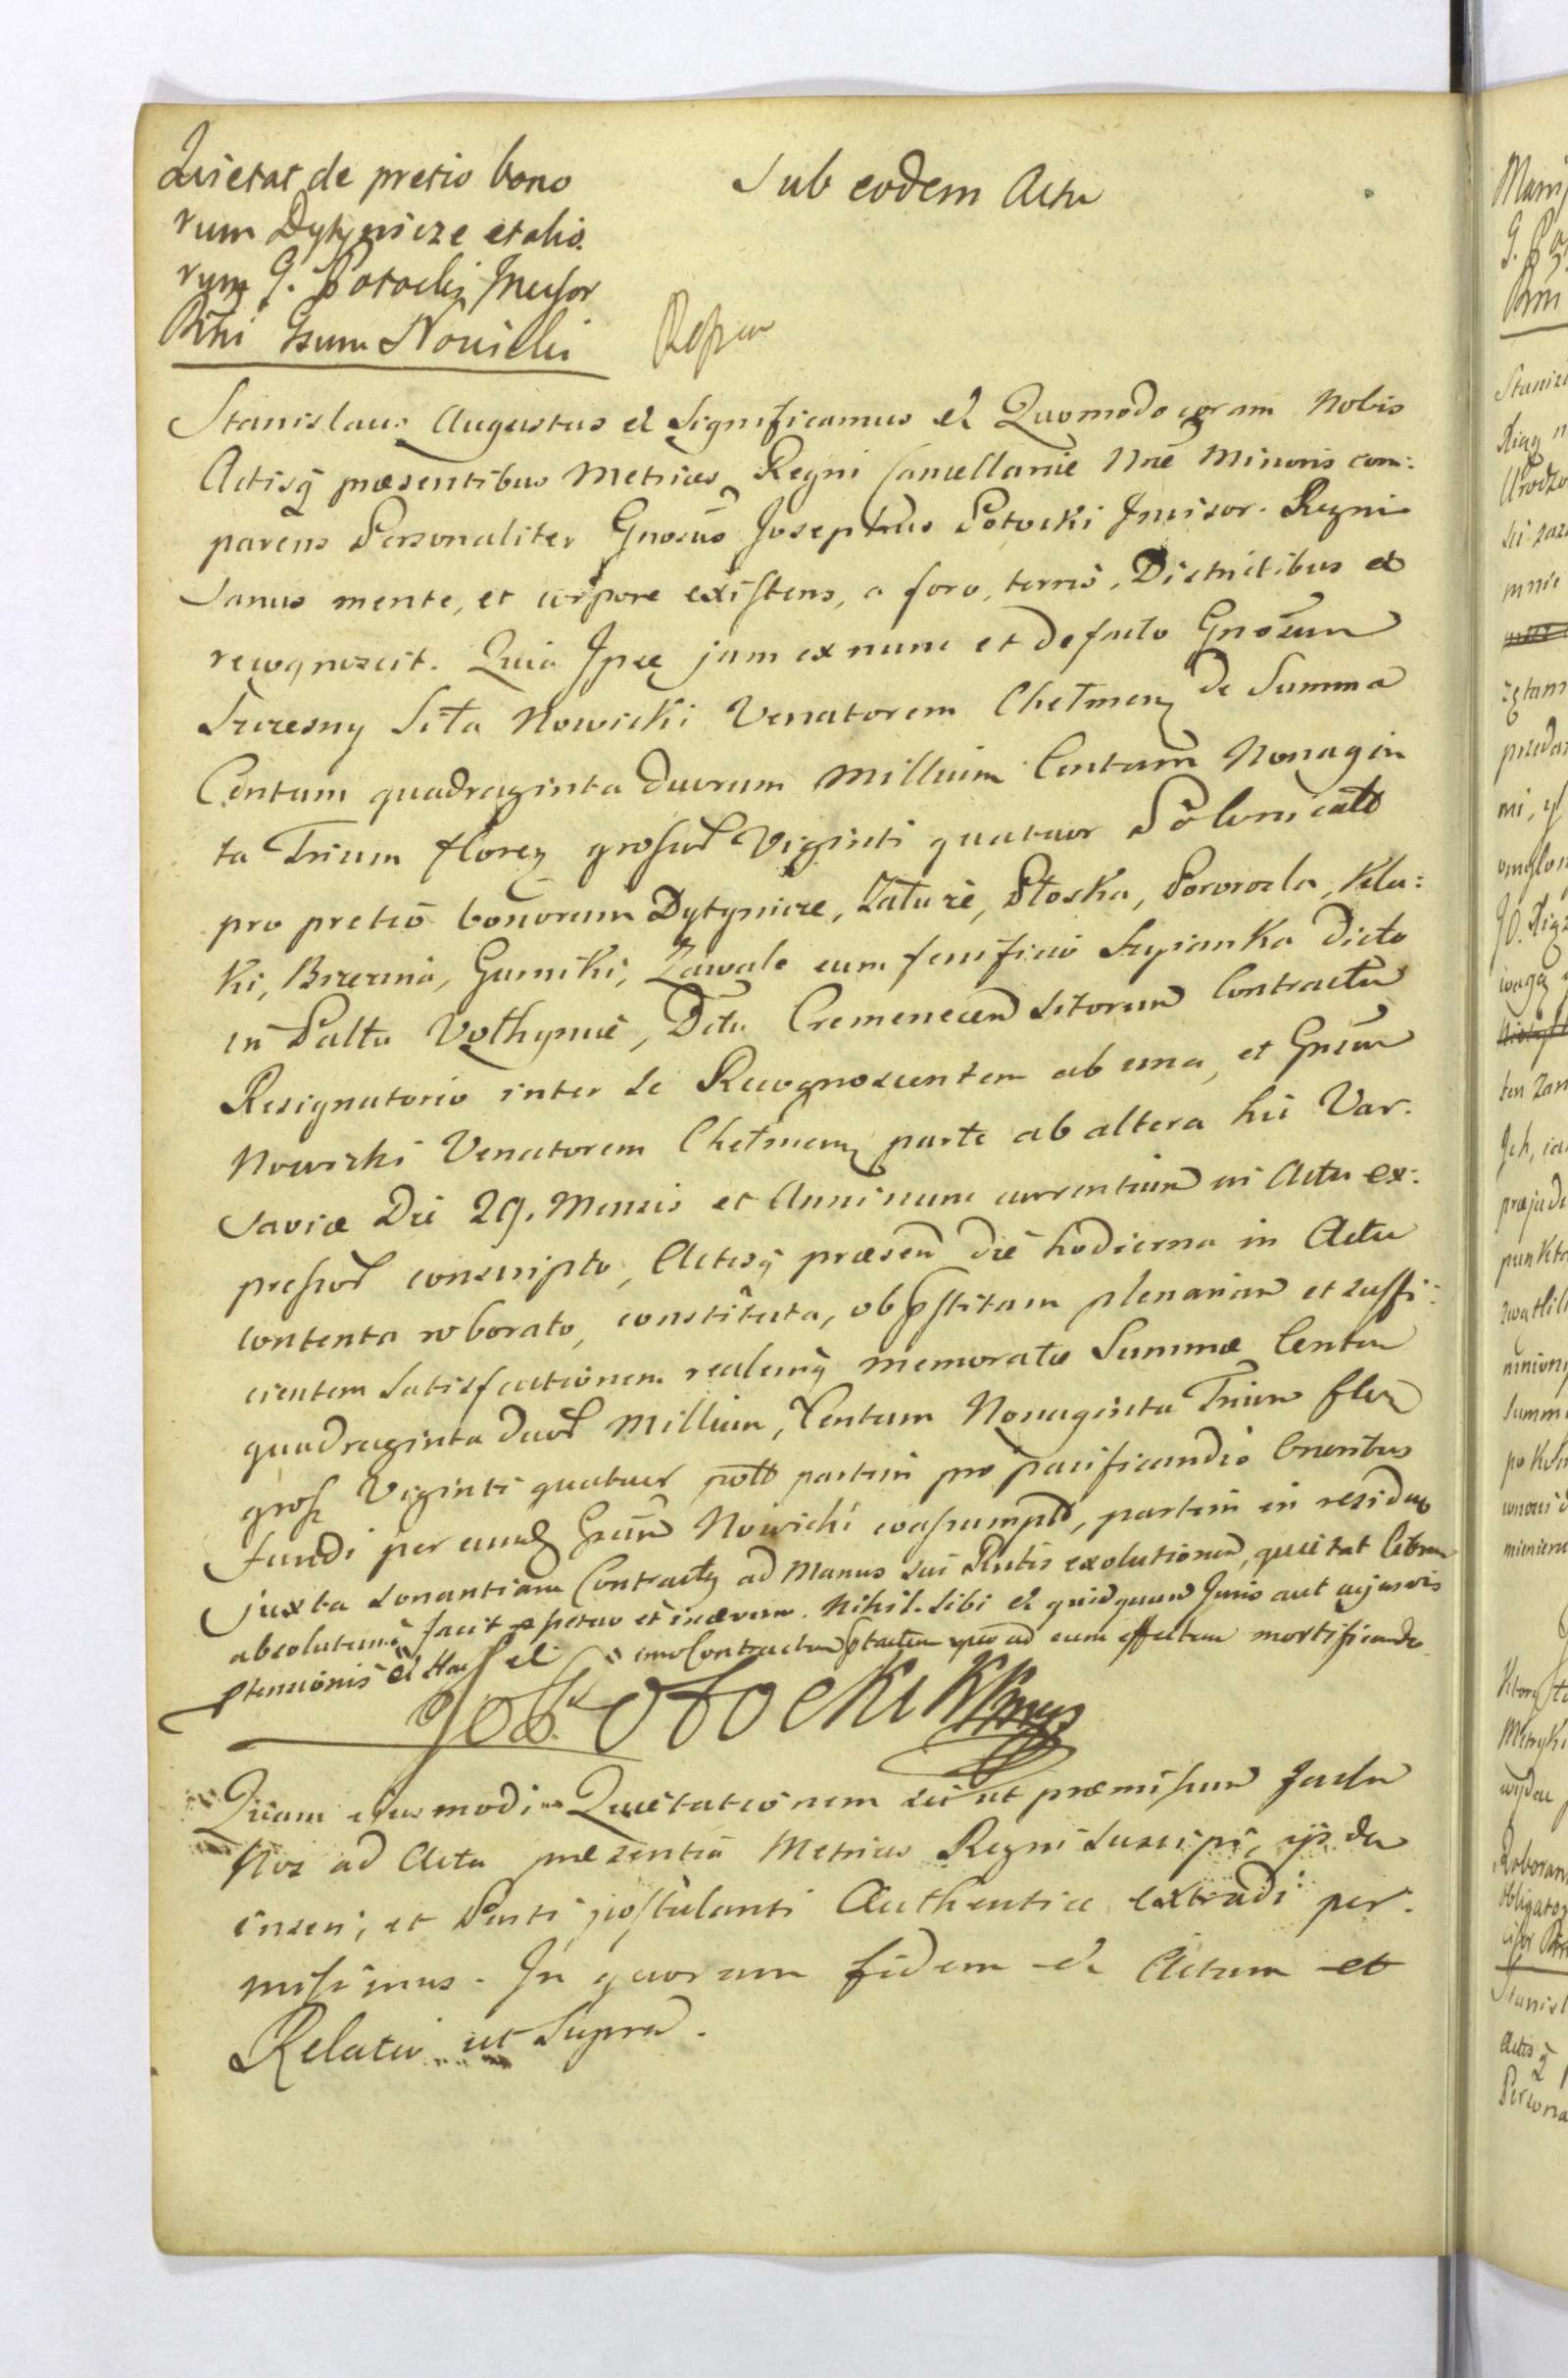 Quietat de pretio bono
rum Dytynicze et alio
rum G. Potocki Incisor
Rni Gsum Nowicki
Sub eodem Actu
Stanislaus Augustus et Significamus et Quomodo coram Nobis
Actisq̃ præsentibus Metrices Regni Cancellariæ Nræ Minoris com:
parens Personaliter Gnosus Josephus Potocki Incisor Regni
Sanus mente, et corpore existens, a foro, terris, Districtibus et
recognoscit. Quia Ipse jam ex nunc et de facto Gnosum
Szczesny Siła Nowicki Venatorem Chełmen de Summa
Centum quadraginta duorum Millium Centum Nonagin
ta Trium floren grossor Viginti quatuor Polonical
pro pretio bonorum Dytynicze, Zaturze, Płoska, Pororoda, Klu:
ki, Brzezina, Gurniki, Zawale cum Szpianka dicto
in Palttu Vołhyniæ, Dttu Cremenecen sitorum Contractu
Resignatorio inter se Recognoscentem ab una, et Gnsum
Nowicki Venatorem Chełmen parte ab altera hic Var:
saviæ Die 29. Mensis et Anni nunc currentium in Actu ex:
pressor conscripto, Actisq̃ præsen die hodierna in Actu
contento roborato, constituta, ob pstitam plenariam et suffi:
cientem satisfactionem realemq̃ memoratæ Summæ Centu
quadraginta duor Millium, Centum Nonaginta Trium flor
gross Viginti quatuor poll partim pro pacificandis Oneribus
fundi per eund Gnsum Nowicki coassumptt, partim in residuo
juxta sonantiam Contractus ad Manus sui Rntis exolutionem, quietat libera
absolutumq̃ facit pperuo et in ævum. Nihil sibi et quidquam Juris aut cujusvis
ptensionis et imo Contractum ptactum quo ad eum effectum mortificando
Jóf Potocki KKmp
Quam ejusmodi Quietationem sic ut præmissum facta
Nos ad Acta præsentia Metrices Regni suscipi, ijsdem
inseri, et Parti postulanti Authentice extradi per:
misimus. In quorum fidem et Actum et
Relatio ut Supra.